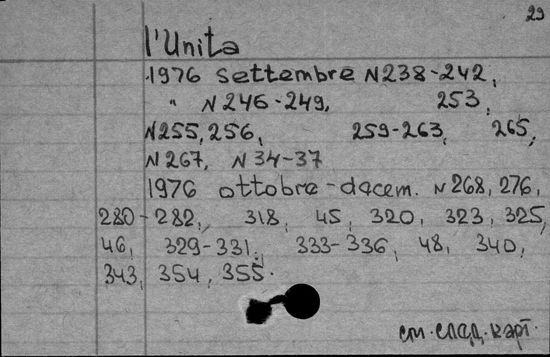 29
l'Unita
1976 settembre N238-242,
" N246-249, 253,
N255, 256, 259-263, 265,
N267, N34-37
1976 ottobre-dacem. N268, 276,
280-282, 318, 45, 320, 323, 325,
46, 329-331, 333-336, 48, 340,
343, 354, 355.
см. след. карт.